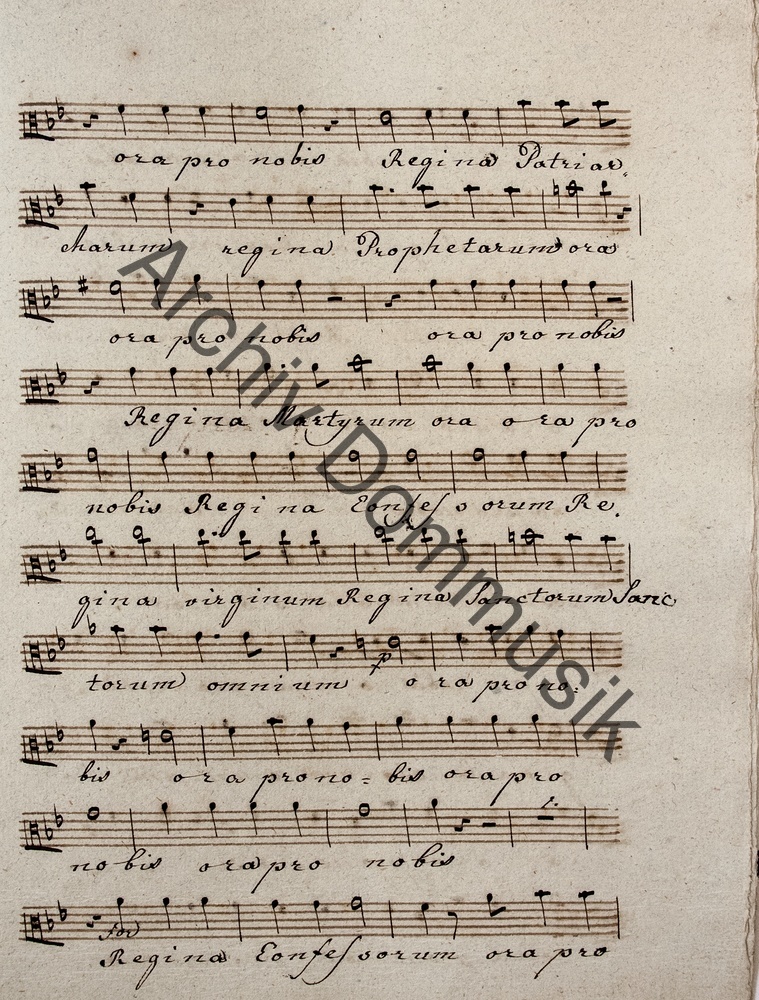 ora pro nobis Regina Patriar=
charum regina Prophetarum ora
ora pro nobis ora pro nobis
Regina Martyrum ora ora pro
nobis Regina Confessorum Re.
gina virginum Regina Sanctorum Sanc
torum omnium p ora pro no=
bis ora pro no=bis ora pro
nobis ora pro nobis
1.
for
Regina Confessorum ora pro
Archiv Dommusik